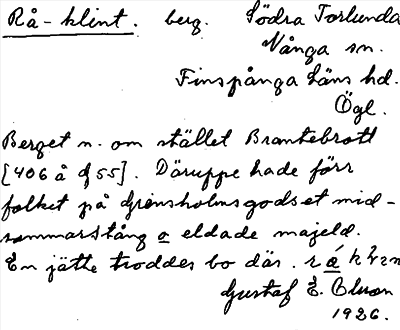 Rå-klint. berg. Södra Torlunda
Vånga sn.
Finspånga Läns hd.
Ögl.
Berget n. om stället Brantebrott
[406 å df 55]. Däruppe hade förr
folket på Grensholmsgodset mid-
sommarstång o eldade majeld.
En jätte troddes bo där. r á k
Gustaf E. Olson
1926.